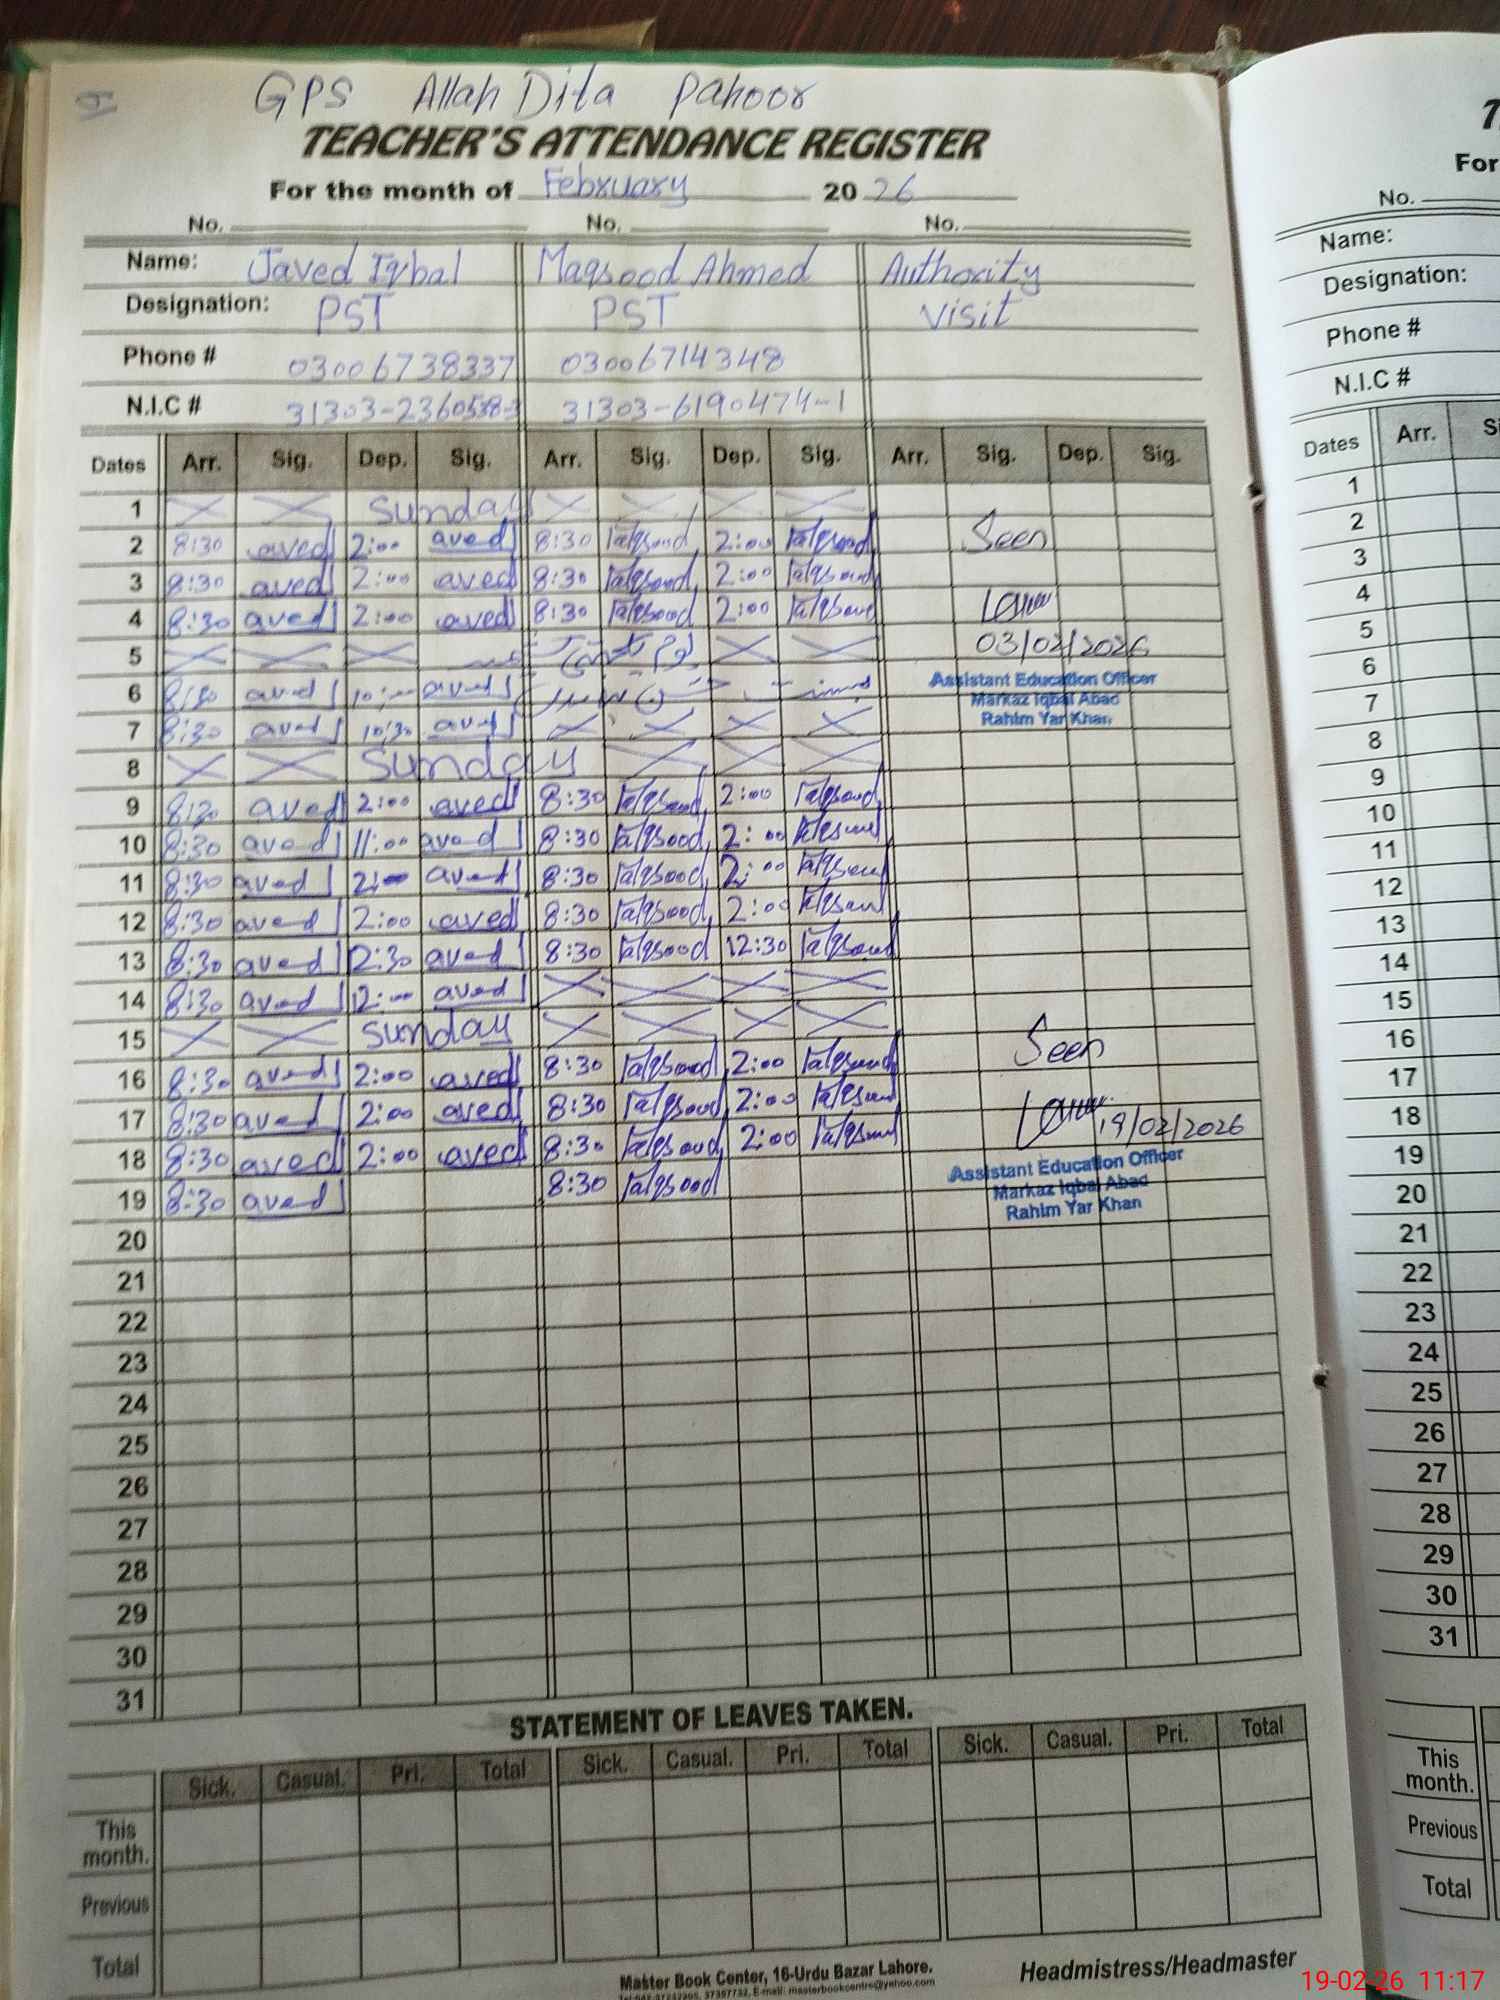 GPS Allah Dita Pahoor
TEACHER'S ATTENDANCE REGISTER
For the month of February 20 26
No. No. No.
Name: Javed Iqbal Maqsood Ahmed Authority
Designation: PST PST visit
Phone # 03006738337 03006714348
N.I.C # 31303-2360538-3 31303-6190474-1
Dates Arr. Sig. Dep. Sig. Arr. Sig. Dep. Sig. Arr. Sig. Dep. Sig.
1 Sunday
2 8:30 aved 2:00 aved 8:30 2:00 Seen
3 8:30 aved 2:00 aved 8:30 2:00
4 8:30 aved 2:00 aved 8:30 2:00
5 03/02/2026
6 8:30 aved aved Assistant Education Officer
Markaz Iqbal Abad
7 8:30 aved 10:30 aved Rahim Yar Khan
8 Sunday
9 8:30 aved 2:00 aved 8:30 2:00
10 8:30 aved 11:00 aved 8:30 2:00
11 8:30 aved 2:00 aved 8:30 2:00
12 8:30 aved 2:00 aved 8:30 2:00
13 8:30 aved 12:30 aved 8:30 12:30
14 8:30 aved 12:00 aved
15 Sunday Seen
16 8:30 aved 2:00 aved 8:30 2:00
17 8:30 aved 2:00 aved 8:30 2:00 19/02/2026
18 8:30 aved 2:00 aved 8:30 2:00 Assistant Education Officer
Markaz Iqbal Abad
19 8:30 aved 8:30 Rahim Yar Khan
20
21
22
23
24
25
26
27
28
29
30
31
STATEMENT OF LEAVES TAKEN.
Sick. Casual. Pri. Total Sick. Casual. Pri. Total Sick. Casual. Pri. Total
This month.
Previous
Total
Master Book Center, 16-Urdu Bazar Lahore.
Headmistress/Headmaster
For
No.
Name:
Designation:
Phone #
N.I.C #
Dates Arr.
1
2
3
4
5
6
7
8
9
10
11
12
13
14
15
16
17
18
19
20
21
22
23
24
25
26
27
28
29
30
31
This month.
Previous
Total
19-02-26 11:17